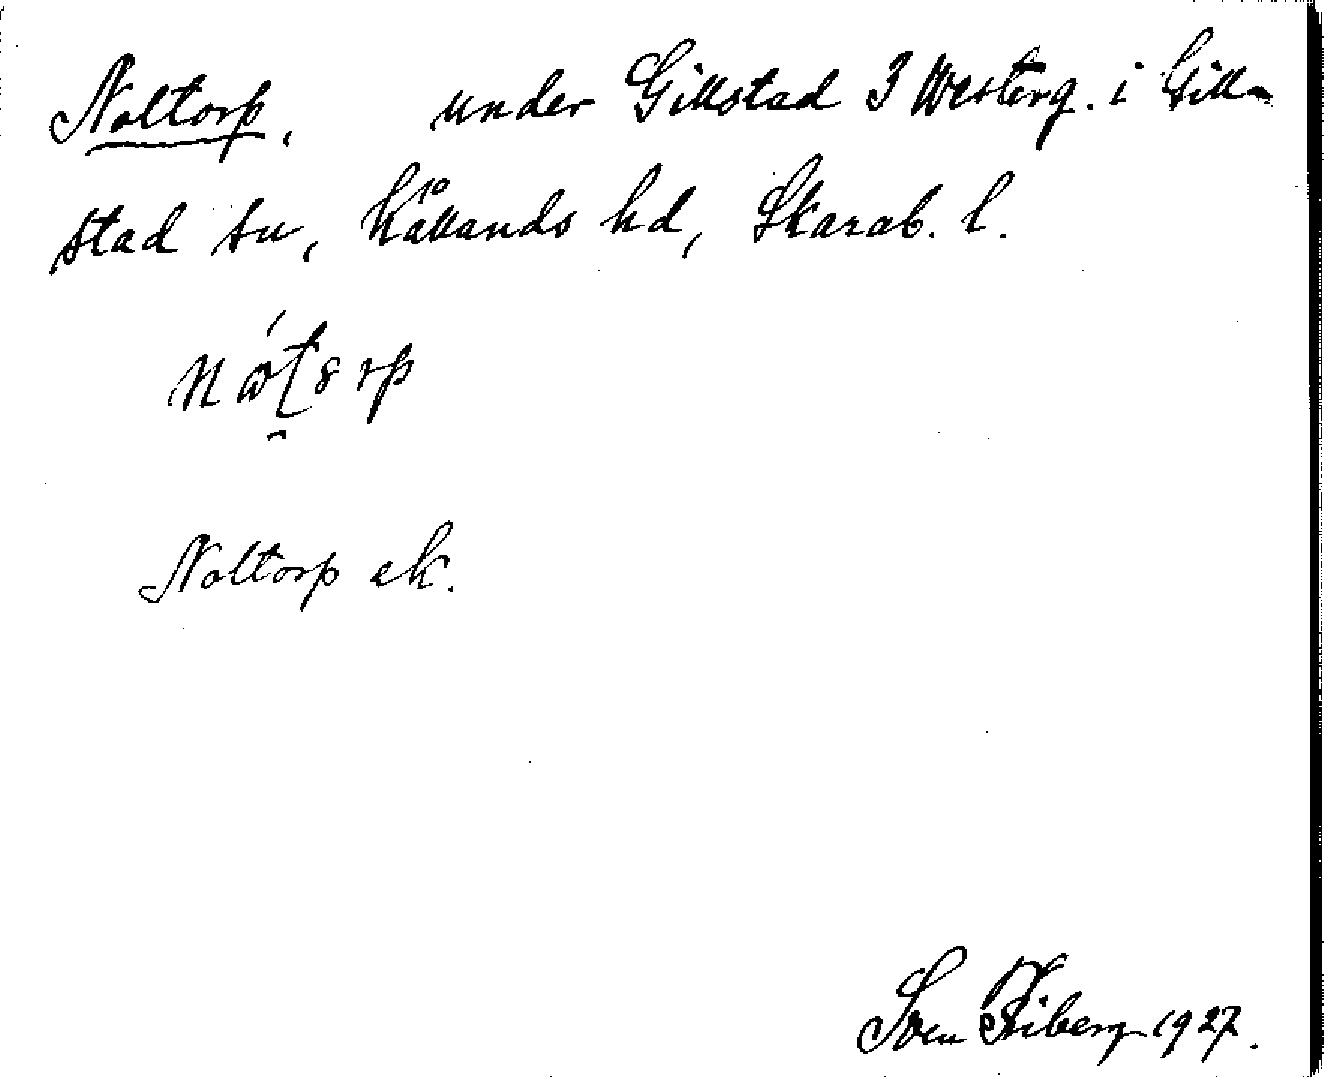 Noltorp, under Gillstad 3 Westerg. i Gill-
stad sn, Kållands hd, Skarab. l.
Noltorp ek.
Sven 1927.